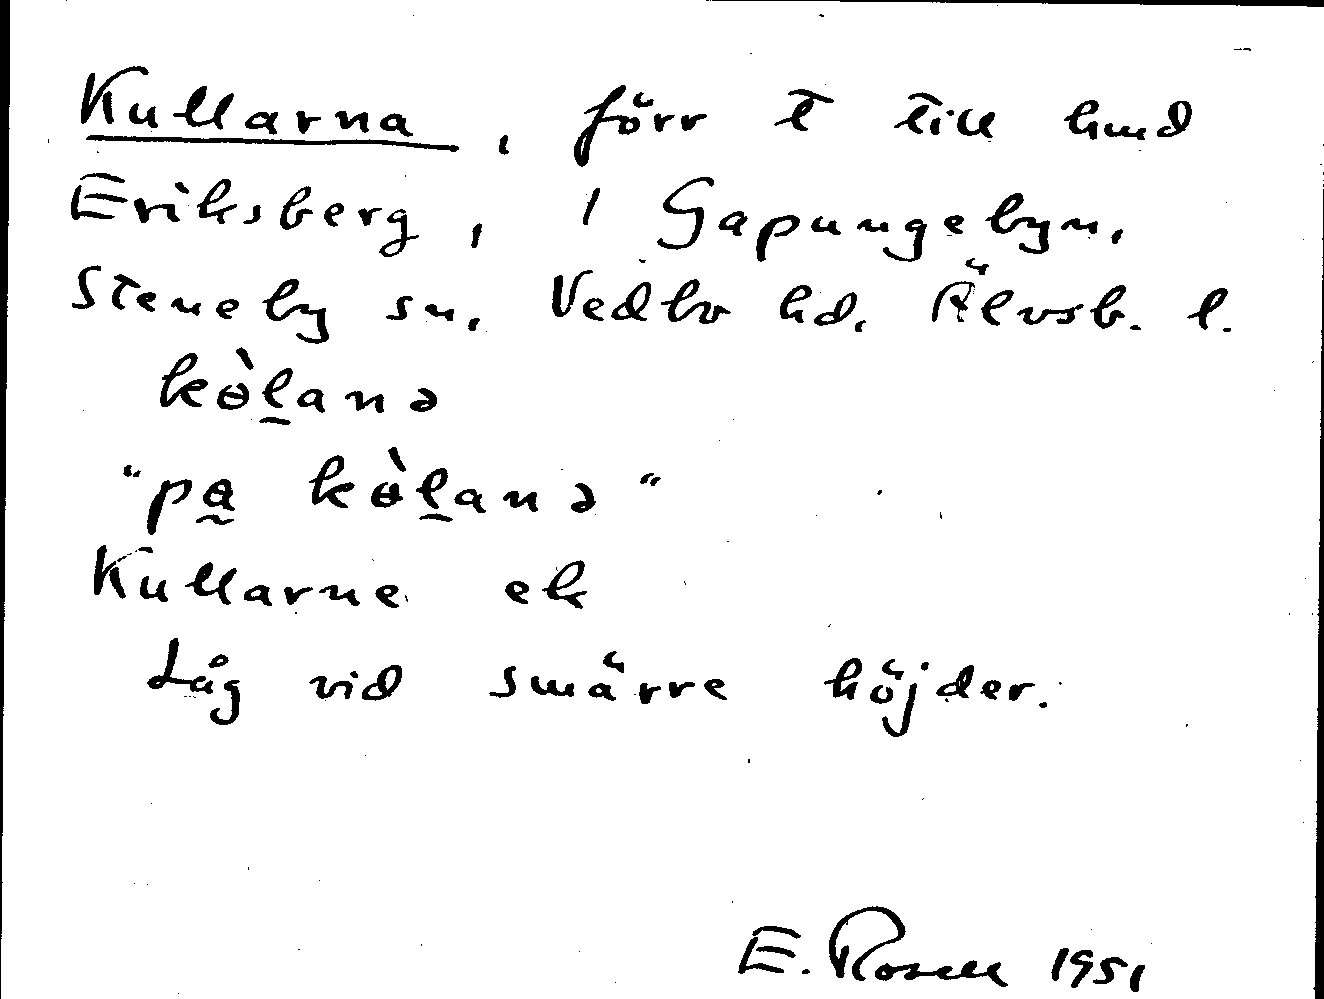 Kullarna, förr t till hmd
Eriksberg, 1 Gapungebyn,
Steneby sn, Vedbo hd, Älvsb. l.
kɵ̀l̠anə
"pa̰ kɵ̀l̠anə"
Kullarne ek
Låg vid smärre höjder.
E. Rosell 1951